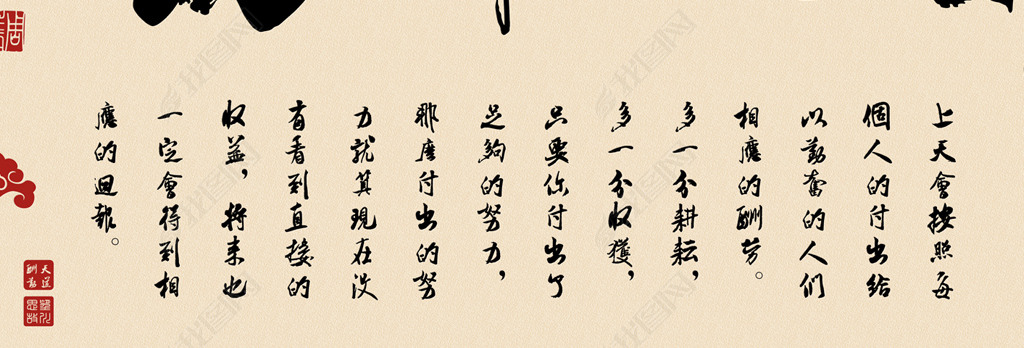 上天會按照每
個人的付出給
以勤奮的人們
相應的酬勞。
多一分耕耘，
多一分收獲，
只要你付出了
足夠的努力，
那麼付出的努
力就算現在沒
有看到直接的
收益，將來也
一定會得到相
應的迴報。
天道
酬勤